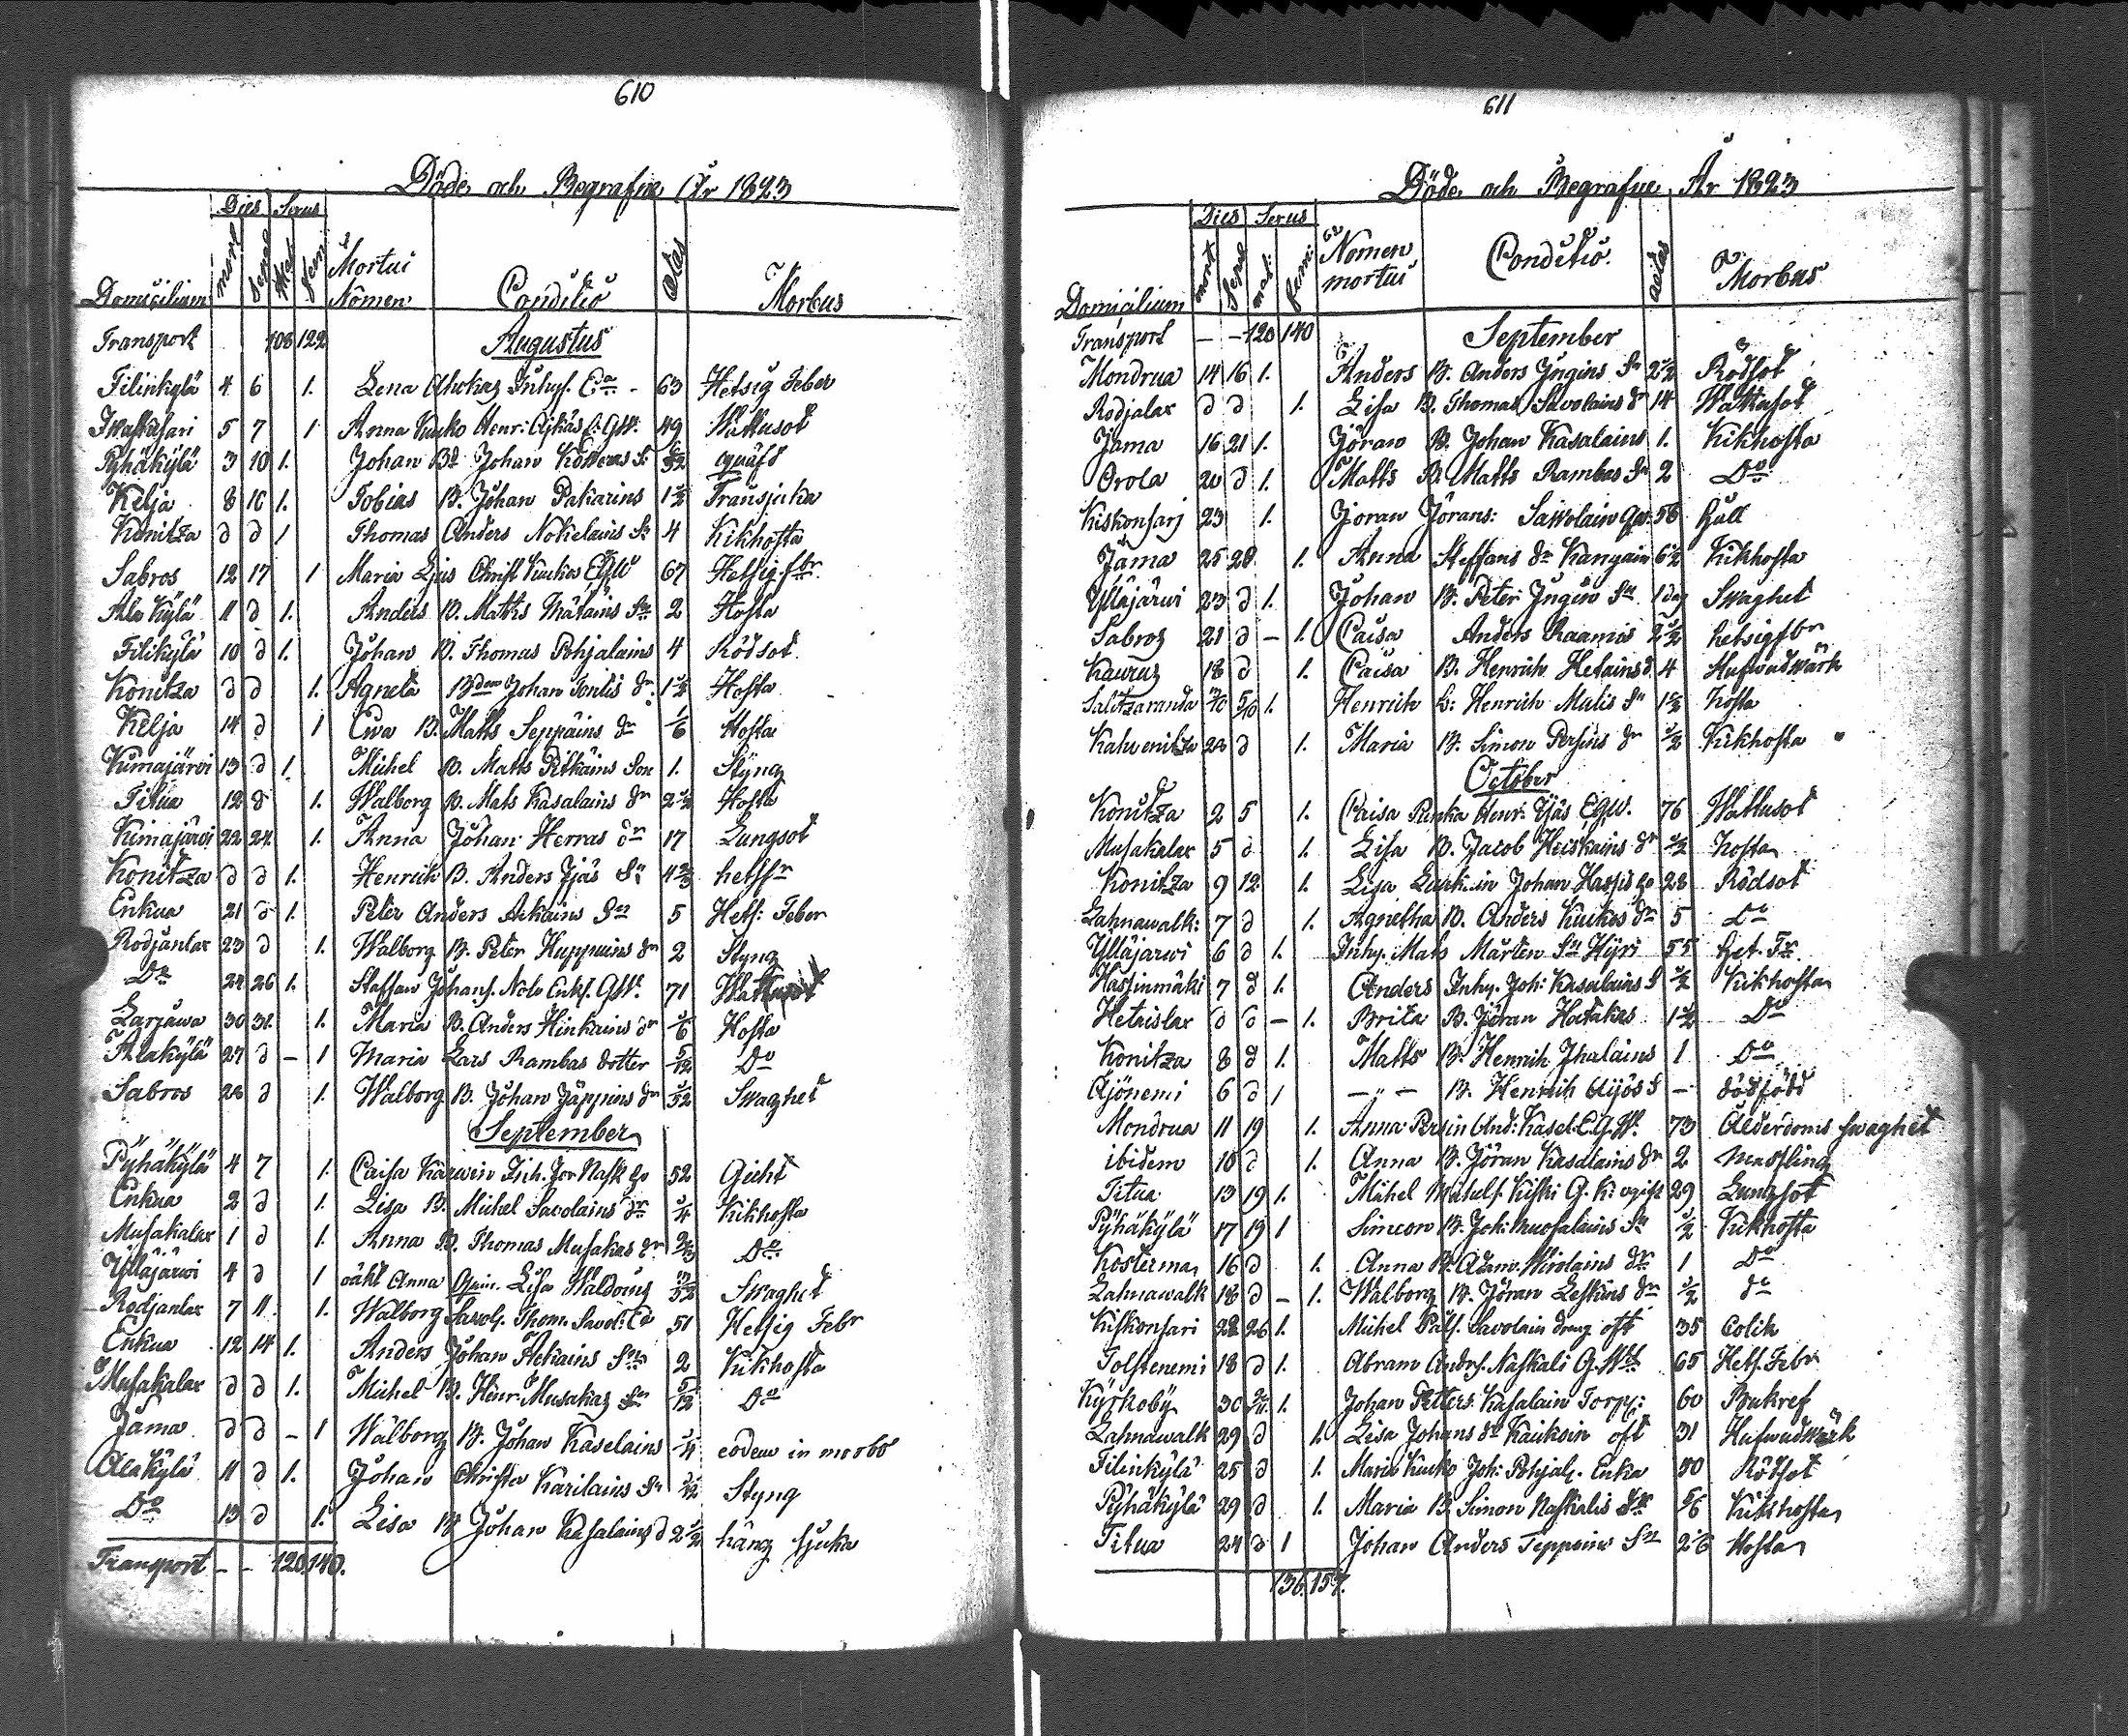 610
Döde och Begrafne År 1823
Dies Sexus
Domicilium mort Sepul Mas Fem Mortui Nomen Conditio Ætas Morbus
Transport 108 122 Augustus
Filinkylä 4 6 1. Lena Inhys. Ea 63 Hetsig feber
5 7 1 Anna Kuko Henr: G.W. 49 Wattusot
Pyhäkylä 3 10 1. Johan Bd Johan Sn qwäfd
Kelja 8 10 1. Tobias B. Johan Pakarins 1 1/2 Transjuka
Konitza d d 1 Thomas Anders Nokelains Sn 4 Kikhosta
Sabros 12 17 1 Maria Christ Kuckos 67 Hetsig fbr
Ala Kylä 11 d 1. Anders B. Matts Sn 2 Hosta
Filikylä 10 d 1. Johan B. Thomas Pohjalains 4 Rödsot
Konitza d d 1. Agneta Bden Johan dr. 1 1/2 Hosta
Kelja 14 d 1 Ewa B. Matts Seppäins dr 1/6 Hosta
Kimajärvi 13 d 1. Michel B. Matts Pitkäins Son 1. Styng
Titua 12 d 1. Walborg B. Mats Kasalains dr 2 1/2 Hosta
Kimajärwi 22 24 1. Anna Johan Herras dr 17 Lungsot
Konitza d d 1. Henrich B. Anders Ijäs Sn hetsfr
Enkua 21 d 1. Peter Anders Askains Sn 5 Hets: Feber
Rodjanlax 23 d 1. Walborg B. Peter Huppuins dr 2 Styng
Do 24 26 1. Staffan Johans. Enkl. 71 Wattusot
Larjawa 30 31 1. Maria B. Anders Hinkains dr 1/6 Hosta
Alakylä 27 d – 1 Maria Lars Rambas dotter 5/12 Do
Sabros 28 d 1. Walborg B. Johan Jäppins dr Swaghet
September
Pyhäkylä 4 7 1. Caisa 52 Gicht
Enkua 2 d 1. Lisa B. Michel Savolains dr 1/4 Kikhosta
Musakalax 1 d 1. Anna B. Thomas Musakas dr Do
Ylläjärwi 4 d 1 oäkt Anna Lisa Swaghet
Rodjanlax 7 11. 1. Walborg Thom. 51 Hetsig Febr
Enkua 12 14 1. Anders Johan Askains Sn 2 Kikhosta
Musakalax d d 1. Michel B. Henr. Musakas Sn 5/12 Do
Jama d d – 1 Walborg B. Johan Kaselains 1/4 eodem in morbo
Alakylä 11 d 1. Johan Christer Karilains Sn Styng
Do 13 d 1. Lisa B. Johan Kasalains d 2 1/2 häng sjuka
Transport – – 120 140.
611
Döde och Begrafne År 1823
Dies Sexus
Domicilium mort Sepul mas: femi: Nomen mortui Conditio. ætas Morbus
Transport – – 120 140 September
Mondrua 14 16 1. Anders B. Anders Ingins Sn 2 1/2 Rödsot
Rodjalax d d 1. Lisa B. Thomas Savolains dr 14 Wattusot
Jama 16 21 1. Jöran B. Johan Kasalains 1. Kikhosta
Orola 20 d 1. Matts B. Matts Rambas Sn 2 Do
Kiskonsarj 23 1. Joran Jörans: Sawolain 56 Håll
Jama 25 28 1. Anna Steffans dr 6 1/2 Kikhosta
Ylläjärwi 23 d 1. Johan B. Peter Ingins Sn 1 dag Swaghet
Sabroz 21 d – 1. Caisa Anders Raamis 2 1/2 hetsig fbr
Kauruz 18 d 1. Caisa B. Henrich Hetains d. 4 Hufwudwärk
Salitzaranda 5/10 1. Henrich B: Henrich Mulis Sn Hosta
Kahwenitza 20 d 1. Maria B. Simon Persins dr 1/2 Kikhosta
October
Konitza 2 5 1. Caisa Henr: Ijäs 76 Wattusot
Musakalax 5 d 1. Lisa B. Jacob Heiskains dr 1/2 Hosta
Konitza 9 12 1. Lisa Johan 28 Rödsot
Lahnawalk: 7 d 1. Agnetha B. Anders Kuckos dr 5 Do
Ylläjarwi 6 d 1. Inhy. Mats Mårten Sn Hyri 55 Het. Fr.
Hassinmäki 7 d 1. Anders Inhy. Joh: Kasalains S 1/2 Kikhosta
Hetaislax d d – 1. Brita B. Jöran Hatakas 1 1/2 Do
Konitza 8 d 1. Matts B. Henrich Ihalains 1 Do
Ajönemi 6 d 1 – „ – B. Henrich Aijös S – dödfödd
Mondrua 11 19 1. Anna Persin And: Kasel: 73 Ålderdoms swaghet
ibidem 10 d 1. Anna B. Jöran Kasalains dr 2 Messling
Titua 13 19 1. Michel Michels. Kiski 29 Lungsot
Pyhäkylä 17 19 1 Simeon B. Joh: Sn 1/2 Kikhosta
Kosterma 16 d 1. Anna B. Adam Wirolains dr 1 Do
Lahnawalk 18 d – 1. Walborg B. Jöran Leskins dr 1/2 do
Kiskonsari 22 26 1. Michel Påls. Savolain dreng oft 35 Colik
Tolstenemi 18 d 1. Abram Andrs. Naskali 65 Hets. Febr
Kyrkoby 30 1. Johan Petters: Kasalain Torp: 60 Bukref
Lahnawalk 29 d 1. Lisa Johans dr Kaukoin oft 31 Hufwudwärk
Filinkylä 25 d 1. Maria Kucko Joh: Pohjal. Enka Rötsot
Pyhäkylä 29 d 1. Maria B. Simon Naskalis dr 5/6 Kikhosta
Titua 24 d 1 Johan Anders Teppoins Sn Hosta
136. 157.